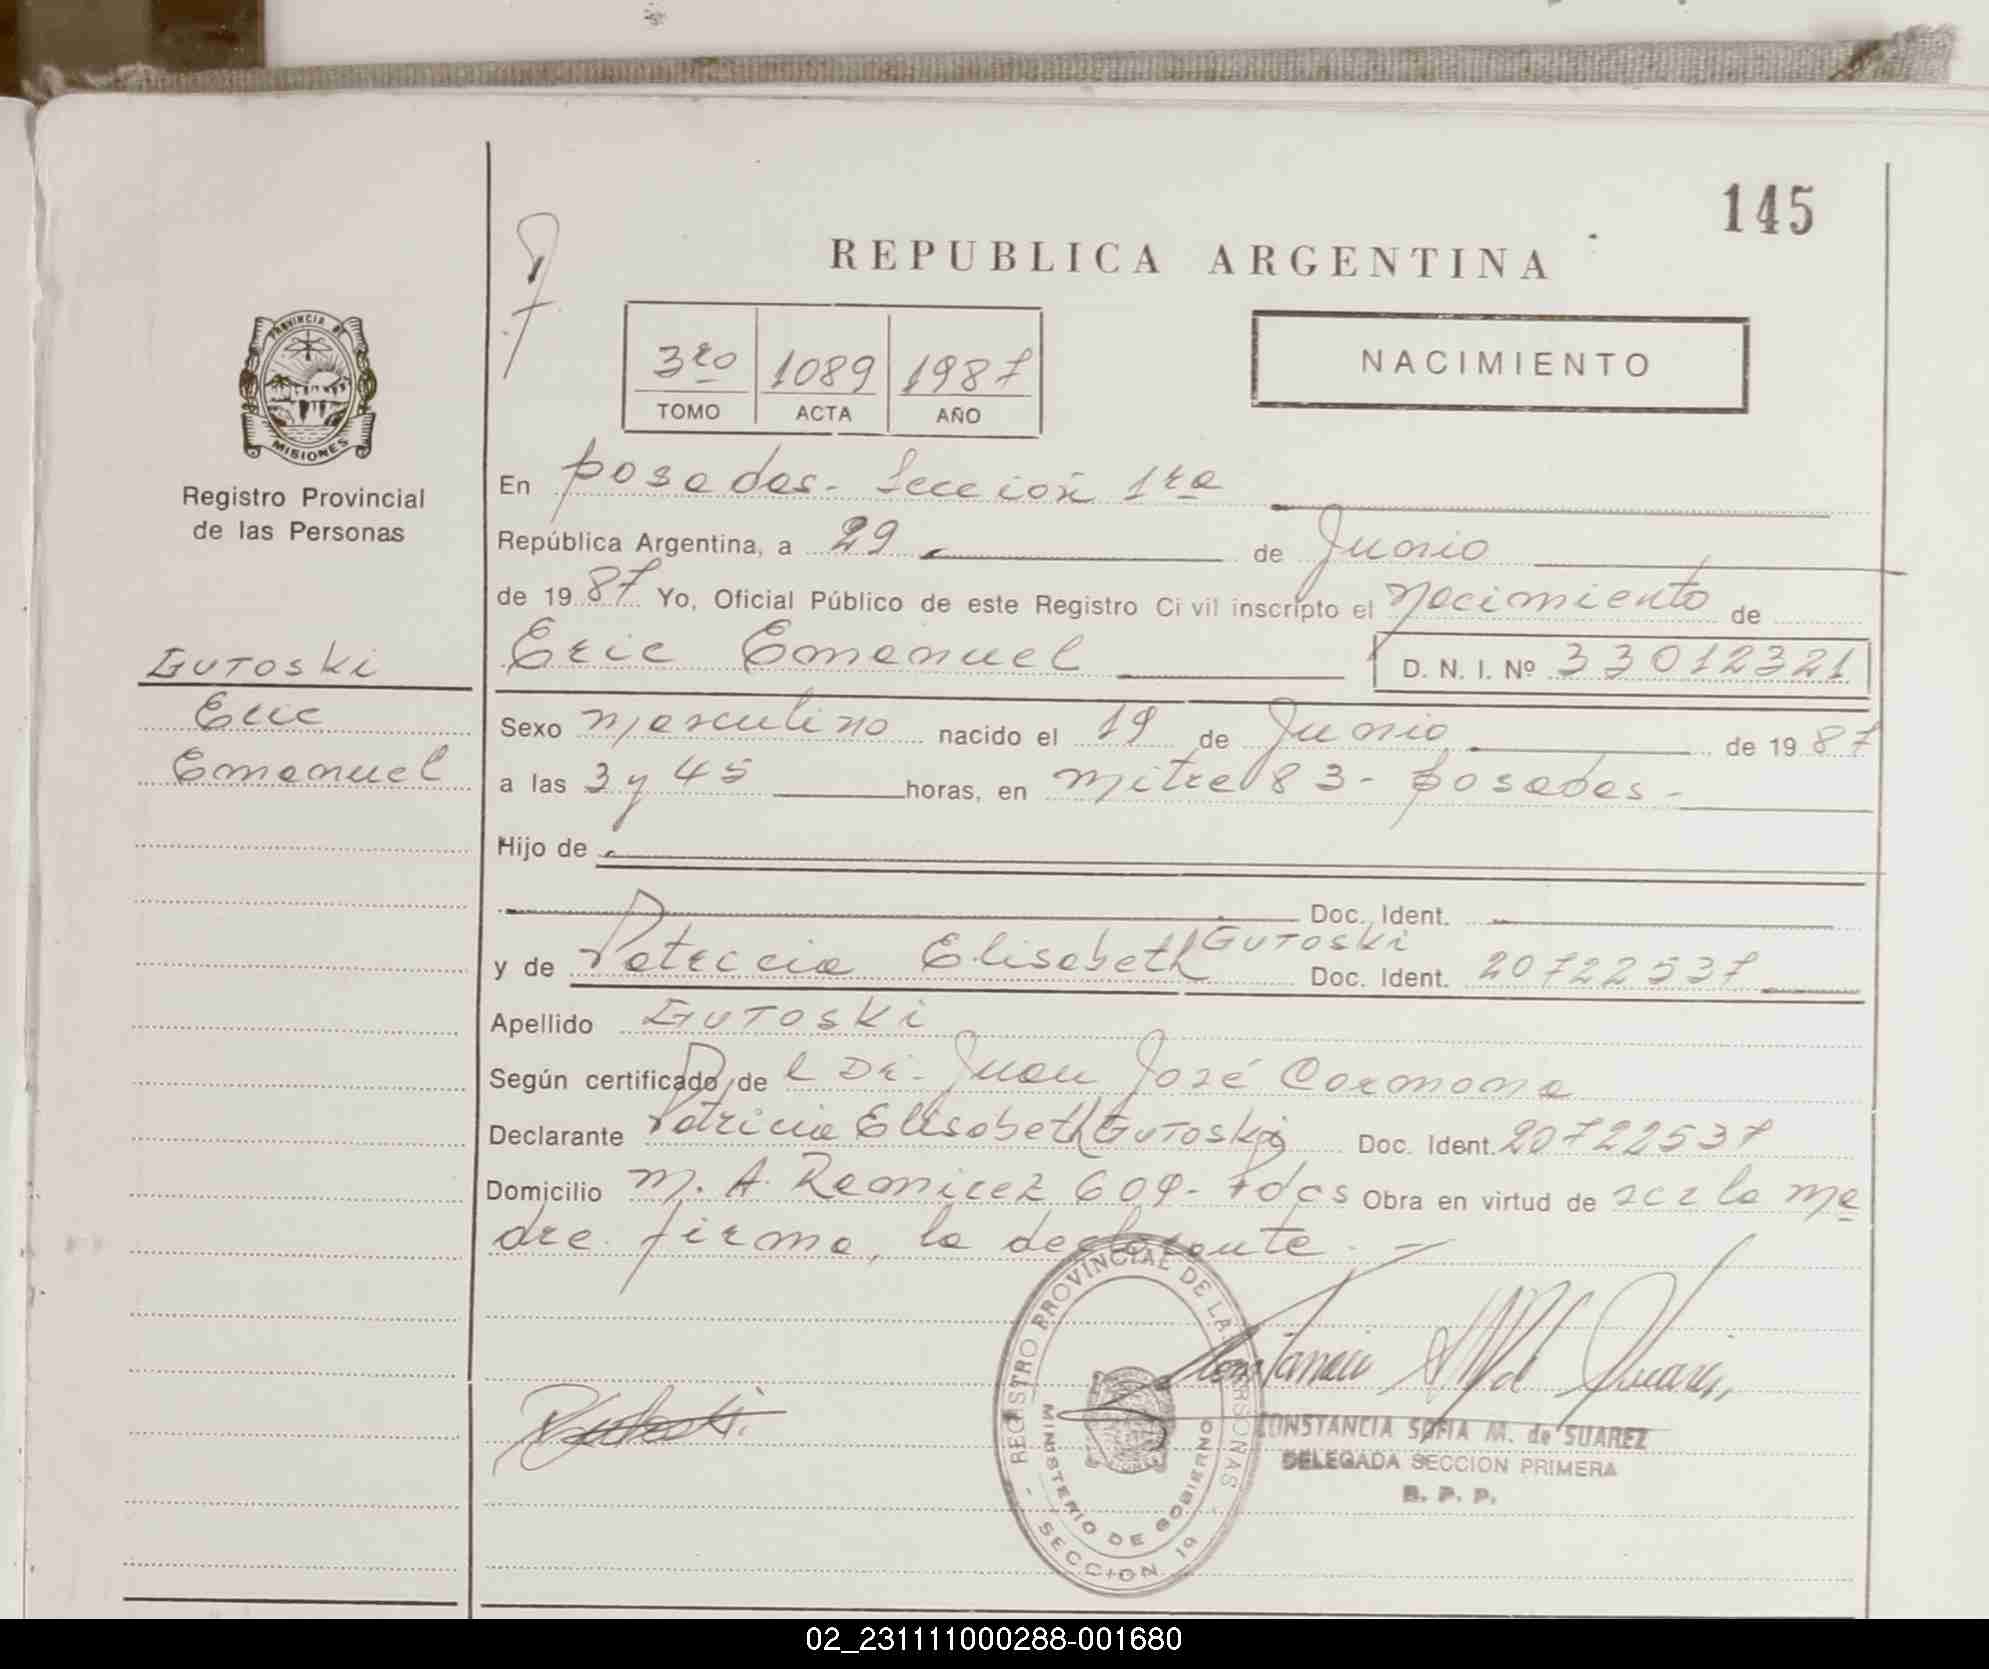 145
REPUBLICA ARGENTINA
3ro 1089 1987
TOMO ACTA AÑO
NACIMIENTO
PROVINCIA DE
MISIONES
Registro Provincial
de las Personas
Gutoski
Eric
Emanuel
En Posadas - Sección 1ra
República Argentina, a 29 de Junio
de 1987 Yo, Oficial Público de este Registro Civil inscripto el Nacimiento de
Eric Emanuel D. N. I. Nº 33012321
Sexo Masculino nacido el 19 de Junio de 1987
a las 3 y 45 horas, en Mitre 83 - Posadas -
Hijo de
Doc. Ident.
y de Patriccia Elisabeth Gutoski Doc. Ident. 20722537
Apellido Gutoski
Según certificado de l Dr. Juan José Carmona
Declarante Patricia Elisabeth Gutoski Doc. Ident. 20722537
Domicilio M. A. Ramirez 609 - Pdas Obra en virtud de ser la ma
dre. firma, la declarante. -
REGISTRO PROVINCIAL DE LAS PERSONAS
MINISTERIO DE GOBIERNO
SECCION 1ª
CONSTANCIA SOFIA M. de SUAREZ
DELEGADA SECCION PRIMERA
R. P. P.
02_231111000288-001680